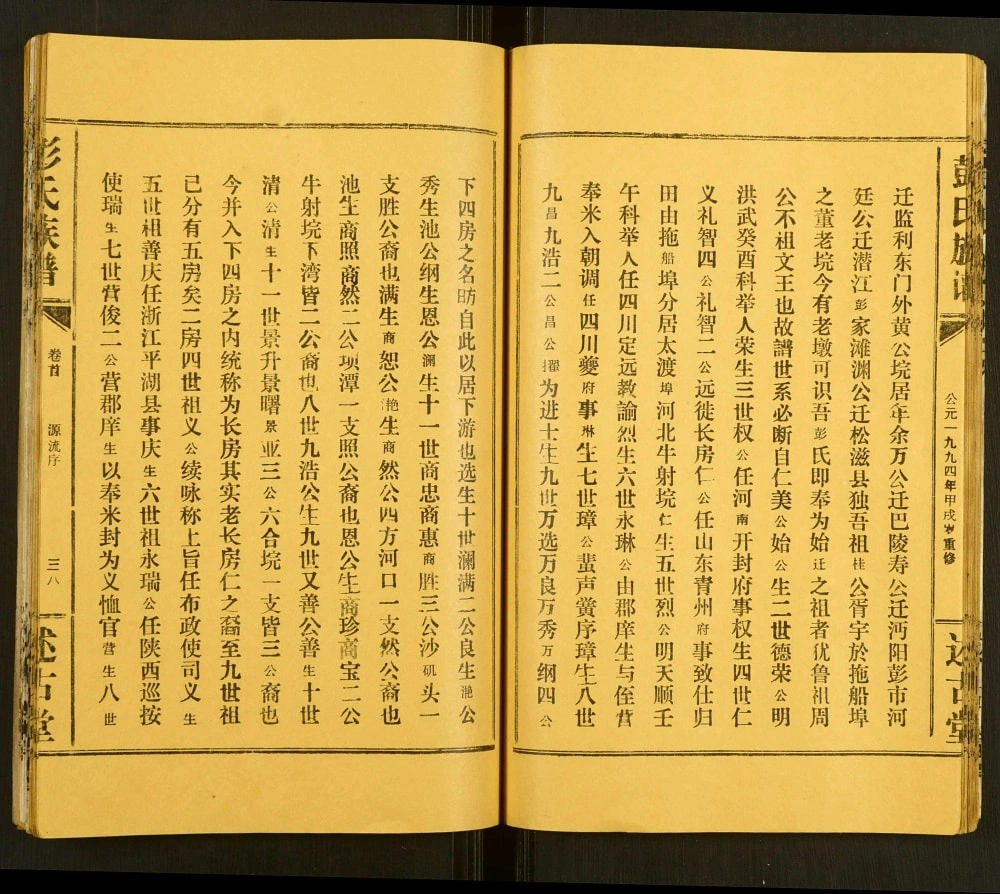 彭氏族谱
公元一九九四年甲戌岁重修
述古堂
迁监利东门外黄公垸居年余万公迁巴陵寿公迁沔阳彭市河
廷公迁潜江彭家滩渊公迁松滋县独吾祖桂公胥宇於拖船埠
之董老垸今有老墩可识吾彭氏即奉为始迁之祖者犹鲁祖周
公不祖文王也故譜世系必断自仁美公始公生二世德荣公明
洪武癸酉科举人荣生三世权公任河南开封府事权生四世仁
义礼智四公礼智二公远徙长房仁公任山东青州府事致仕归
田由拖船埠分居太渡埠河北牛射垸仁生五世烈公明天顺壬
午科举人任四川定远教諭烈生六世永琳公由郡庠生与侄营
奉米入朝调任四川夔府事琳生七世璋公蜚声黉序璋生八世
九昌九浩二公昌公擢为进士生九世万选万良万秀万纲四公
下四房之名昉自此以居下游也选生十世澜满二公良生滟公
秀生池公纲生恩公澜生十一世商忠商惠商胜三公沙矶头一
支胜公裔也满生商恕公滟生商然公四方河口一支然公裔也
池生商照商然二公项潭一支照公裔也恩公生商珍商宝二公
牛射垸下湾皆二公裔也八世九浩公生九世又善公善生十世
清公清生十一世景升景曙景亚三公六合垸一支皆三公裔也
今并入下四房之内统称为长房其实老长房仁之裔至九世祖
已分有五房矣二房四世祖义公续咏称上旨任布政使司义生
五世祖善庆任浙江平湖县事庆生六世祖永瑞公任陕西巡按
使瑞生七世营俊二公营郡庠生以奉米封为义恤官营生八世
彭氏族谱
卷首
源流序
三八
述古堂